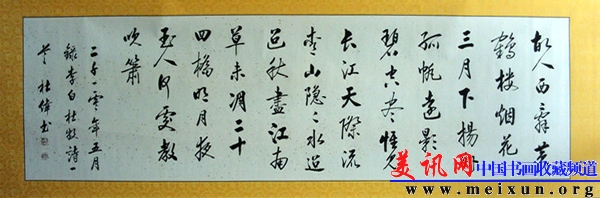 故人西辞黄
鶴楼烟花
三月下揚州
孤帆遠影
碧空尽惟見
長江天際流
青山隐隐水迢
迢秋盡江南
草未凋二十
四橋明月夜
玉人何處教
吹簫
二千一零年五月
録李白杜牧詩一
杜偉书
美讯网
中国书画收藏频道
www.meixun.org